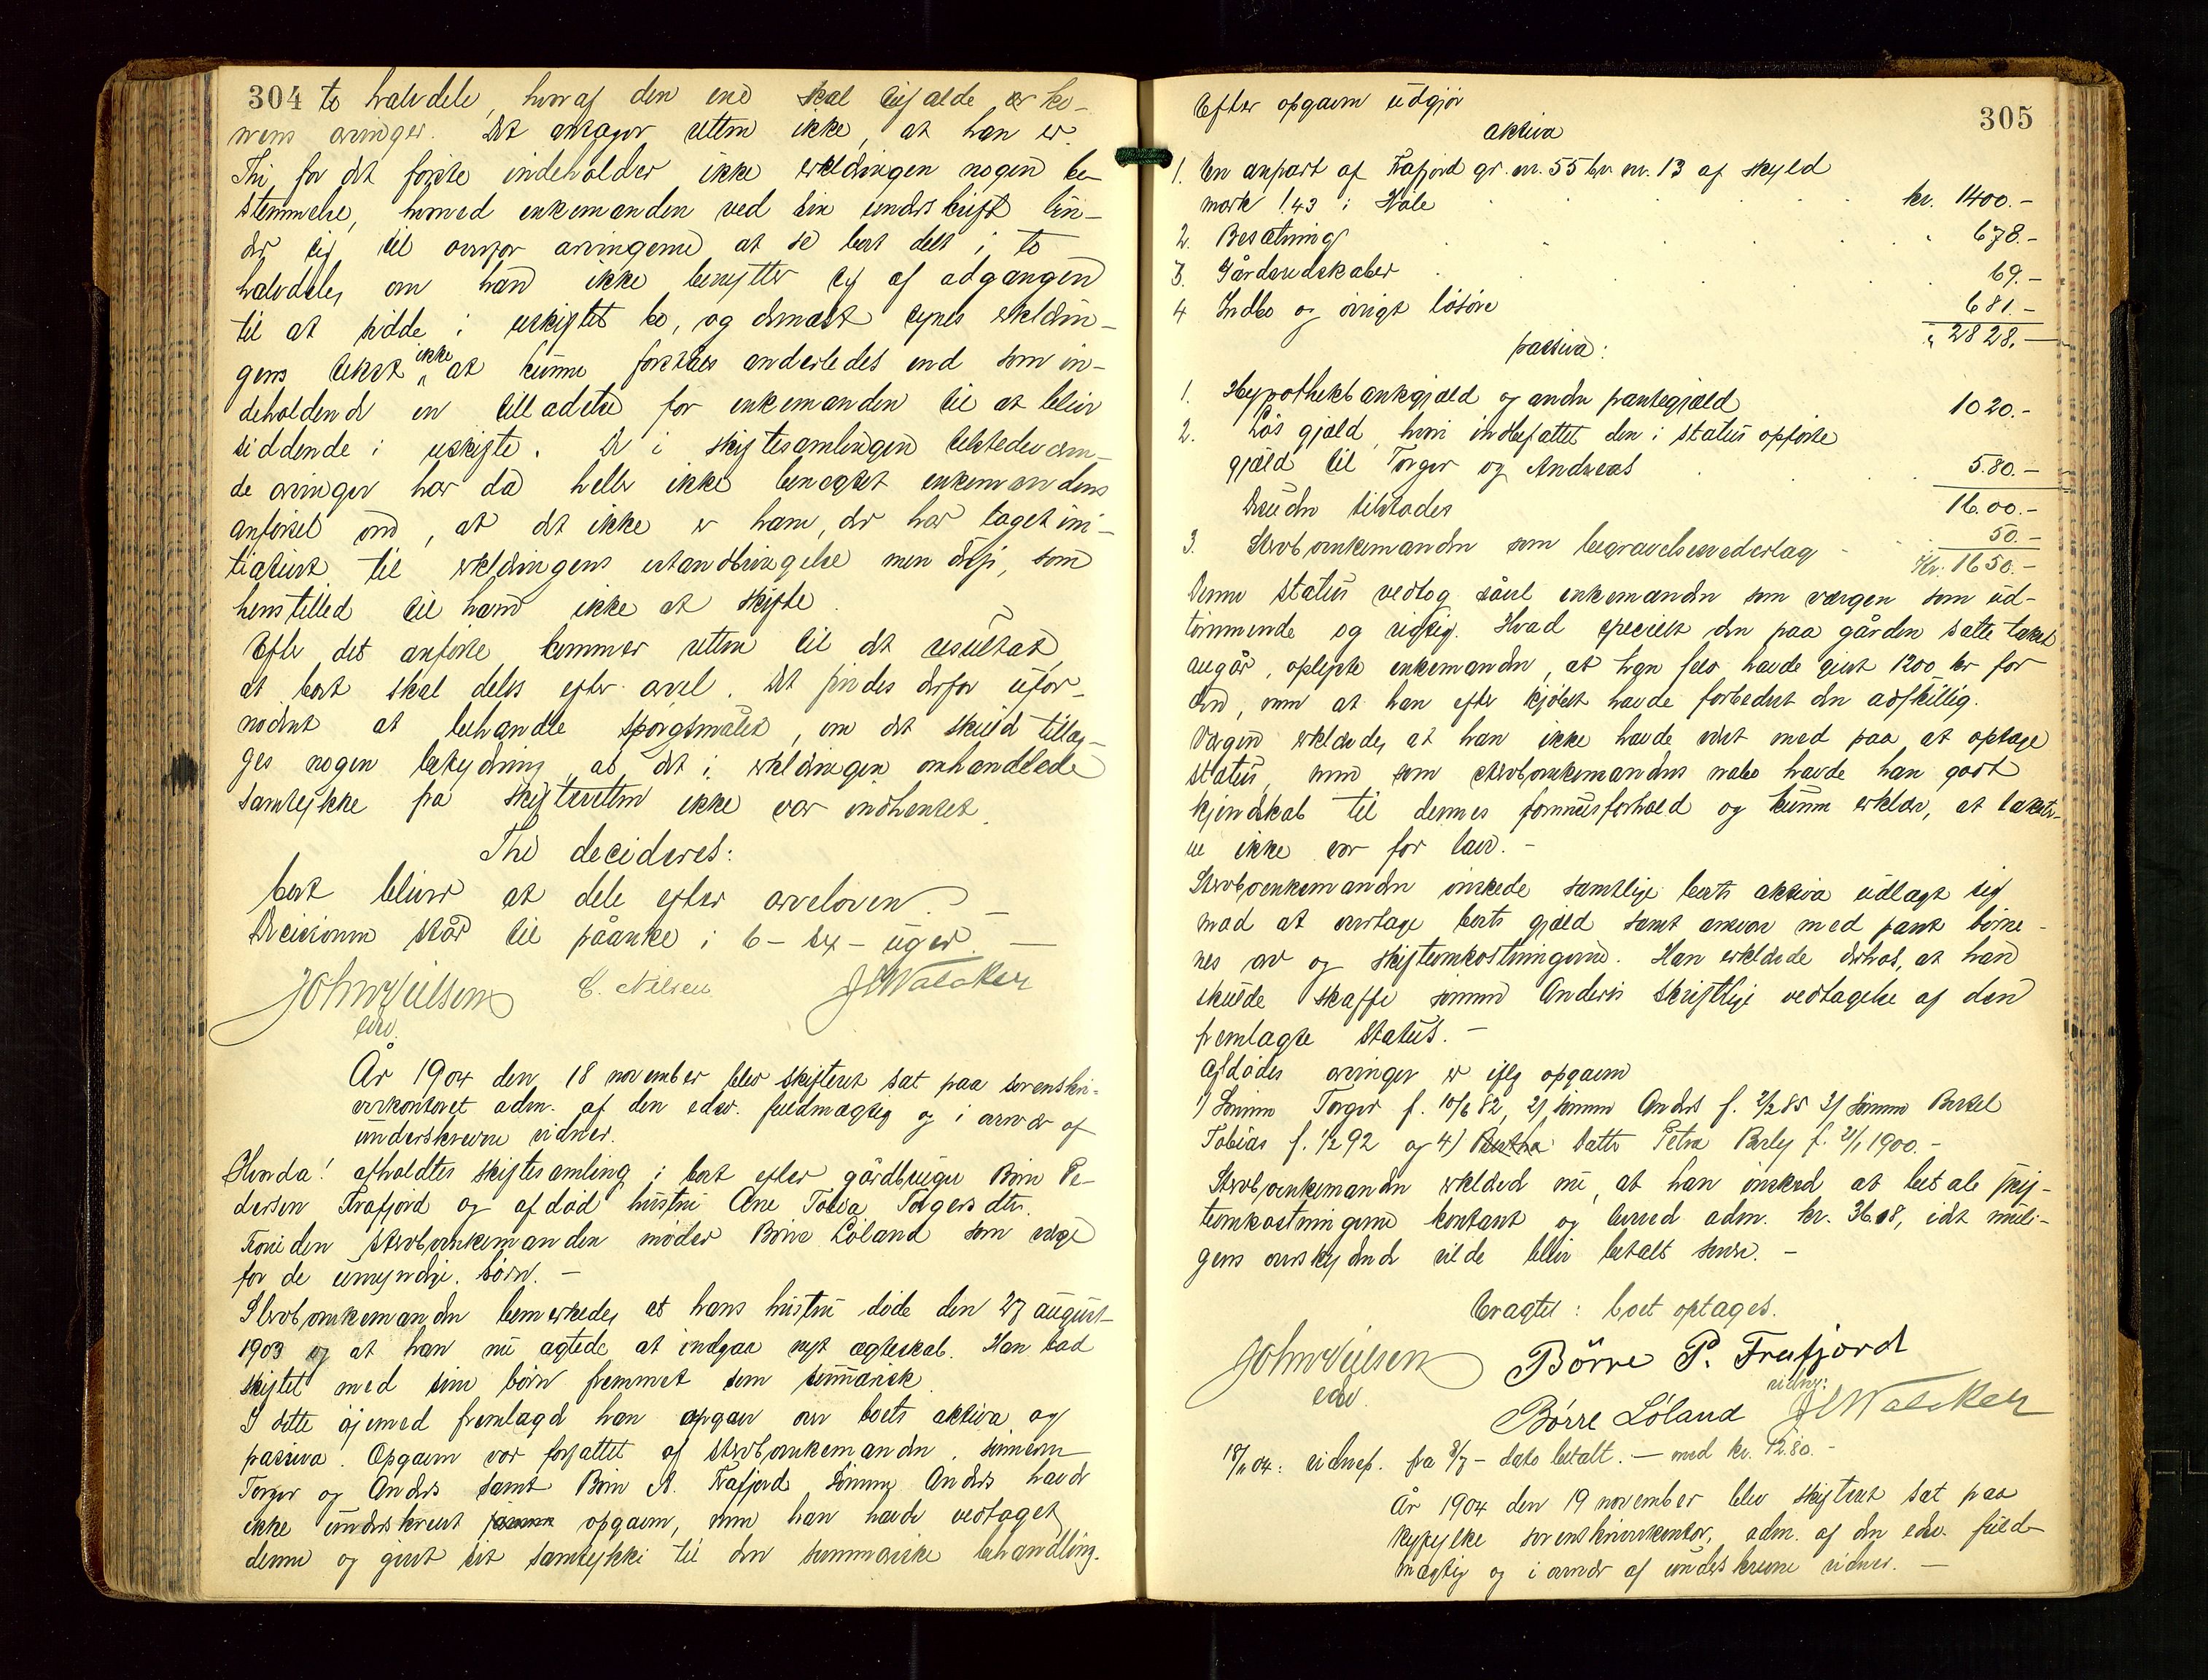 304 to halvdele, hvoraf den ene skal tilfalde er ko-
nens arvinger. Det antager retten ikke, at han er.
Thi for det første indeholder ikke erklæringen nogen be-
stemmelse, hvorved enkemanden ved sin underskrift bin-
der sig til overfor arvingerne at se boet delt i to
halvdele, om han ikke benytter sig af adgangen
til at sidde i uskiftet bo, og dernæst synes erklærin-
gens tekst ikke at kunne forståes anderledes end som in-
deholdende en tilladelse for enkemanden til at blive
siddende i uskifte. De i skiftesamlingen tilstedeværen-
de arvinger har da heller ikke benegtet enkemandens
anførsel om, at det ikke er ham, der har taget ini-
tiativet til erklæringens istandbringelse men de, som
henstilled til ham ikke at skifte.
Efter det anførte kommer retten til det resultat,
at boet skal deles efter arvel. Det findes derfor ufor-
nødent at behandle spørgsmålet, om det skuld tillæg-
ges nogen betydning, at det i erklæringen omhandlede
samtykke fra skifteretten ikke var indhentet.
Thi decideres:
boet bliver at dele efter arveloven. —
Decisionen står til påanke i 6 - sex - uger. —
John Nilsen C. Nilsen J Walcker
edsv.
År 1904 den 18 november blev skifteret sat paa sorenskri-
verkontoret adm. af den edsv. fuldmægtig og i overvær af
underskrevne vidner.
Hvorda! afholdtes skiftesamling i boet efter gårdbruger Børre Pe-
dersen Frafjord og afdød hustru Ane Tobia Torgersdtr.
Foruden stervboenkemanden møder Børre Löland som værge
for de umyndige börn. —
Stervboenkemanden bemerkede, at hans hustru døde den 27 august
1903 og at han nu agtede at indgaa nyt ægteskab. Han bad
skiftet med sine børn fremmet som summarisk.
I dette øjemed fremlagde han opgave over boets aktiva og
passiva. Opgaven var forfattet af stervboenkemanden, sønnerne
Torger og Anders samt Børre A. Frafjord. Sønnen Anders havde
ikke underskrevet opgaven, men han havde vedtaget
denne og givet sit samtykke til den summariske behandling.
305
Efter opgaven udgjør
aktiva
1. En anpart af Frafjord gr. nr. 55 br. nr. 13 af skyld
mark 1.43 i Høle kr. 1400.-
2. Besætning " 678.-
3. Gårdsredskaber 69.-
4 Indbo og øvrigt løsøre 681.-
" 2828.-
passiva:
1. Hypothekbankgjæld og anden pantegjæld 1020.-
2. Løs gjæld, heri indbefattet den i status opførte
gjæld til Torger og Andreas 580.-
Desuden tilstodes 1600.-
3. Stervboenkemanden som begravelsesvederlag 50.-
Kr. 1650.-
Denne status vedtog såvel enkemanden som værgen som ud-
tømmende og rigtig. Hvad specielt den paa gården satte takst
angår, oplyste enkemanden, at han selv havde givet 1200 kr for
den, men at han efter kjøbet havde forbedret den adskillig.
Værgen erklærede, at han ikke havde været med paa at optage
status, men som stervboenkemandens nabo havde han godt
kjendskab til dennes formuesforhold og kunne erklære, at takster-
ne ikke var for lave. -
Stervboenkemanden ønskede samtlige boets aktiva udlagt sig
mod at overtage boets gjæld samt ansvar med pant børne-
nes arv og skifteomkostningerne. Han erklærede derhos, at han
skulde skaffe sønnen Anders skriftlige vedtagelse af den
fremlagte status. -
Afdødes arvinger er ifølg opgaven
1) Sønnen Torger f. 10/6 82, 2) sønnen Anders f. 2/2 85 3) sønnen Bertel
Tobias f. 1/2 92 og 4) datter Petra Berly f. 21/1 1900. -
Stervboenkemanden erklæred nu, at han ønsked at betale skif-
teomkostningerne kontant og leverede adm. kr. 36.08, idet muli-
gens overskydende vilde blive betalt senere. -
Eragtet: boet optages.
John Nilsen Börre P. Frafjord
edsv. vidner:
Börre Löland J Walcker
18/11 04: vidnef. fra 8/7 - dato betalt. — med kr. 12.80. -
År 1904 den 19 november blev skifteret sat paa
Ryfylke sorenskriverkontor, adm. af den edsv. fuld-
mægtig og i overvær af underskrevne vidner. —